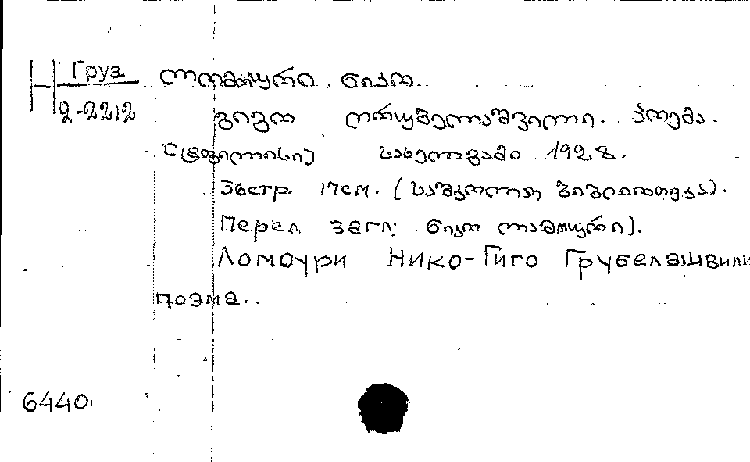 Н Груз ლომაური ნიკო.
2-2212 გიგო ღრუბელაშვილი. პოემა.
[ტფილისი] სახელგამი 1928.
36стр. 17см. (საშკოლო ბიბლიოთეკა).
Перел. загл: ნიკო ლამოური).
Ломоури Нико-Гиго Грубелашвили
поэма..
6440